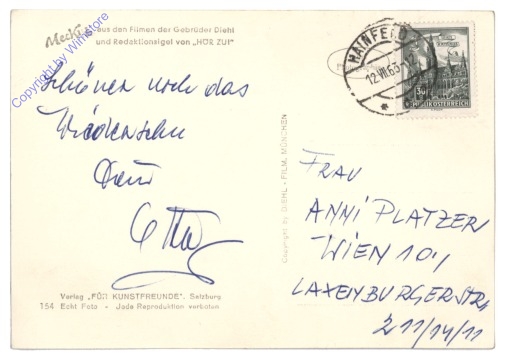 Mecki aus den Filmen der Gebrüder Diehl
und Redaktionsigel von „HÖR ZU!"
Copyright by Wimstore
HAINFELD
12.VII.63-12
REPUBLIK ÖSTERREICH
Schöner noch das
Wiedersehn
Dein
Otto
Copyright by DIEHL-FILM, MÜNCHEN
FRAU
ANNI PLATZER
WIEN 10,
LAXENBURGERSTR
211/14/11
Verlag „FÜR KUNSTFREUNDE", Salzburg
154 Echt Foto - Jede Reproduktion verboten